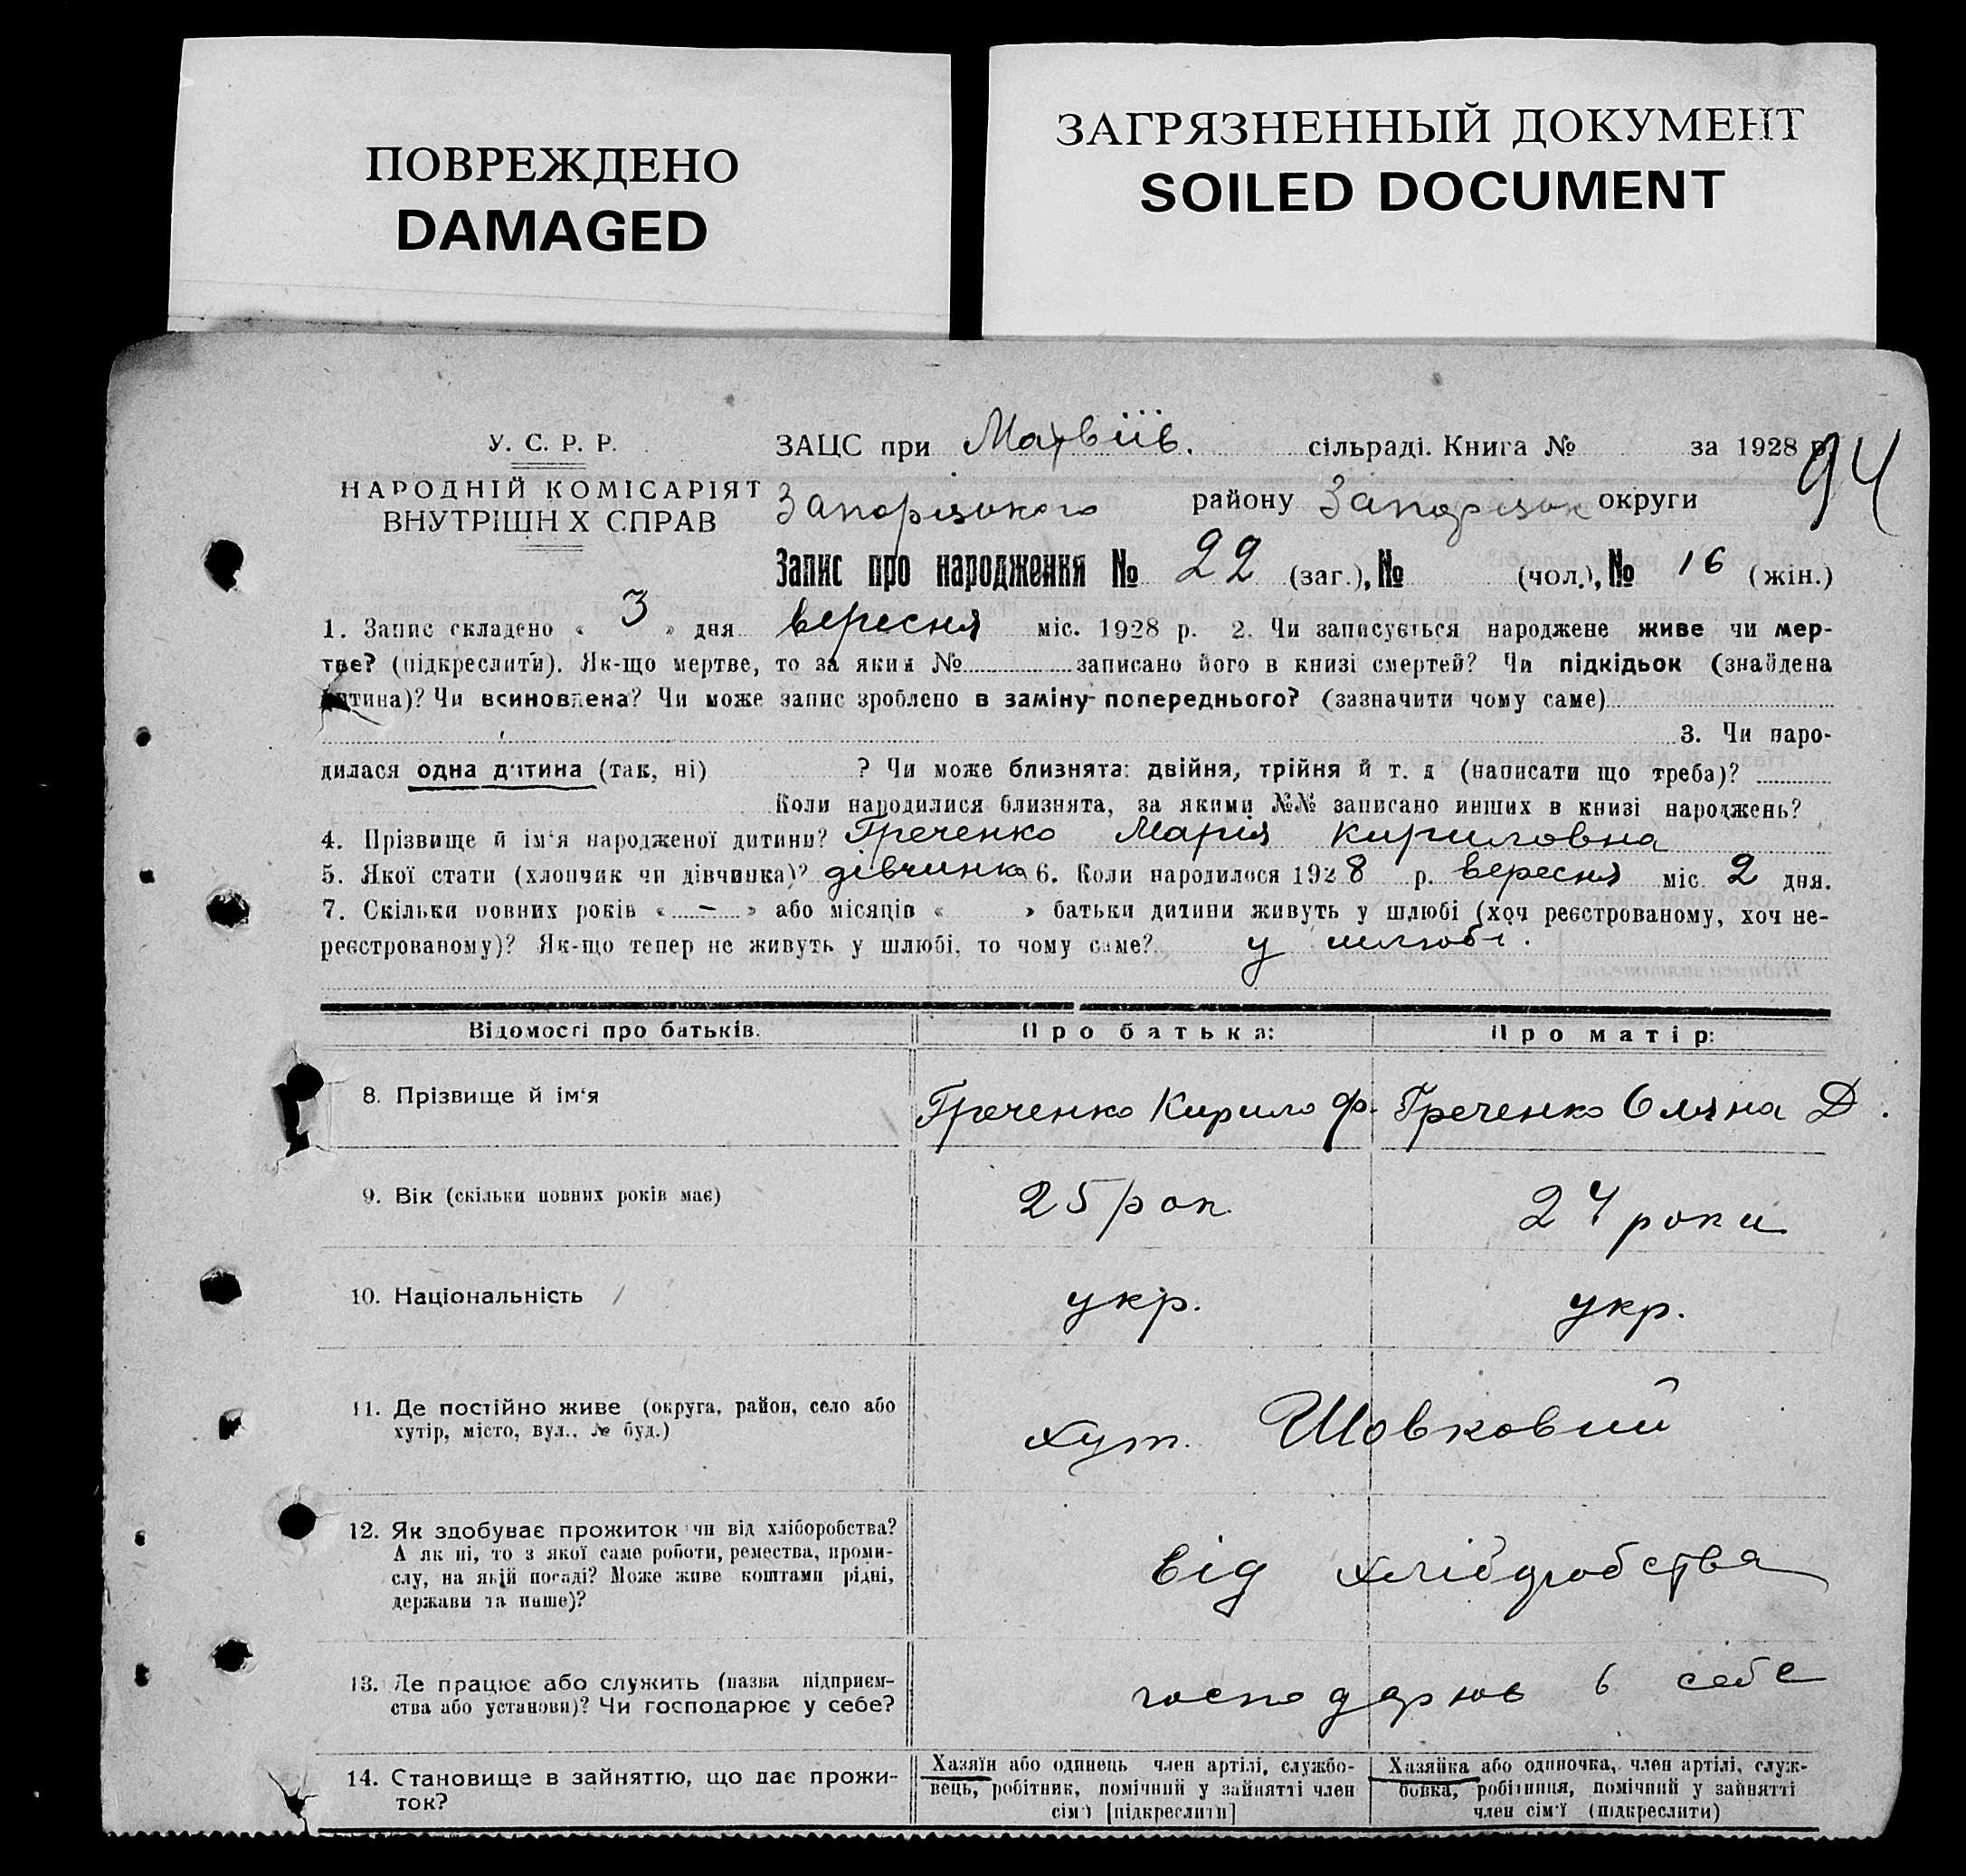 ПОВРЕЖДЕНО
DAMAGED
ЗАГРЯЗНЕННЫЙ ДОКУМЕНТ
SOILED DOCUMENT
94
У. С. Р. Р.
НАРОДНІЙ КОМІСАРІЯТ
ВНУТРІШН Х СПРАВ
ЗАЦС при Матвіїв. сільраді. Книга № за 1928 р.
Запорізького району Запорізьк округи
Запис про народження № 22 (заг.), № (чол.), № 16 (жін.)
1. Запис складено « 3 » дня вересня міс. 1928 р. 2. Чи записується народжене живе чи мер-
тве? (підкреслити). Як-що мертве, то за яким № записано його в книзі смертей? Чи підкідьок (знайдена
дитина)? Чи всиновлена? Чи може запис зроблено в заміну попереднього? (зазначити чому саме)
3. Чи наро-
дилася одна дитина (так, ні) ? Чи може близнята: двійня, трійня й т. д (написати що треба)?
Коли народилися близнята, за якими №№ записано инших в книзі народжень?
4. Прізвище й ім'я народженої дитини? Греченко Марія Кириловна
5. Якої стати (хлопчик чи дівчинка)? дівчинка 6. Коли народилося 1928 р. вересня міс. 2 дня.
7. Скільки повних років « — » або місяців « » батьки дитини живуть у шлюбі (хоч реєстрованому, хоч не-
реєстрованому)? Як-що тепер не живуть у шлюбі, то чому саме? у шлюбі.
Відомості про батьків. Про батька: Про матір:
8. Прізвище й ім'я Греченко Кирило Ф. Греченко Оляна Д.
9. Вік (скільки повних років має) 25 рок. 24 роки
10. Національність укр. укр.
11. Де постійно живе (округа, район, село або
хутір, місто, вул., № буд.) хут. Шовковий
12. Як здобуває прожиток чи від хліборобства?
А як ні, то з якої саме роботи, ремества, проми-
слу, на якій посаді? Може живе коштами рідні,
держави та инше)? від хліборобства
13. Де працює або служить (назва підприєм-
ства або установи)? Чи господарює у себе? господарює в себе
14. Становище в зайняттю, що дає прожи-
ток?
Хазяїн або одинець член артілі, службо-
вець, робітник, помічний у зайнятті член
сім'ї [підкреслити]
Хазяйка або одиночка, член артілі, служ-
бовка, робітниця, помічний у зайнятті
член сім'ї (підкреслити)